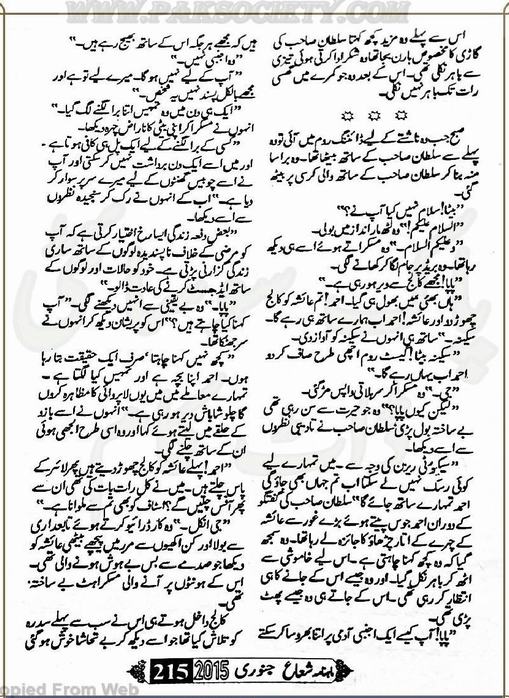 WWW.PAKSOCIETY.COM
اس سے پہلے وہ مزید کچھ کہتا سلطان صاحب کی
گاڑی کا مخصوص ہارن بجا تھا وہ شکر ادا کرتی ہوئی تیزی
سے باہر نکلی تھی۔ اس کے بعد وہ جو کمرے میں گھسی
رات تک باہر نہیں نکلی۔
☆ ☆ ☆
صبح جب وہ ناشتے کے لیے ڈائننگ روم میں آئی تو وہ
پہلے سے سلطان صاحب کے ساتھ بیٹھا تھا۔ وہ برا سا
منہ بنا کر سلطان صاحب کے ساتھ والی کرسی پر بیٹھ
گئی۔
"بیٹا! سلام نہیں کیا آپ نے؟"
"السلام علیکم!" وہ لٹھ مار انداز میں بولی۔
"وعلیکم السلام۔" وہ مسکراتے ہوئے اسے ہی دیکھ
رہا تھا۔ وہ بریڈ پر جام لگا کر کھانے لگی۔
"پاپا! مجھے کالج سے دیر ہو رہی ہے۔"
"ہاں بھئی میں بھول ہی گیا۔ احمد! تم عائشہ کو کالج
چھوڑ دو اور عائشہ! احمد اب ہمارے ساتھ ہی رہے گا۔
سکینہ۔" ساتھ ہی انہوں نے سکینہ کو آواز دی۔
"سکینہ بیٹا! گیسٹ روم اچھی طرح صاف کر دو
احمد اب یہاں رہے گا۔"
"جی۔" وہ مسکرا کر سر ہلاتی واپس مڑ گئی۔
"لیکن کیوں پاپا؟" وہ جو حیرت سے سن رہی تھی
بے ساختہ بول پڑی سلطان صاحب نے تادیبی نظروں
سے اسے دیکھا۔
"سیکیورٹی ریزن کی وجہ سے۔ میں تمہارے لیے
کوئی رسک نہیں لے سکتا اب تم جہاں بھی جاؤ گی
احمد تمہارے ساتھ جائے گا" سلطان صاحب کی گفتگو
کے دوران احمد جوس پیتے ہوئے بڑے غور سے عائشہ
کے چہرے کے اتار چڑھاؤ کا جائزہ لے رہا تھا۔ وہ سمجھ
گیا کہ وہ کچھ کہنا چاہتی ہے۔ اس لیے خاموشی سے
اٹھ کر باہر نکل گیا۔ اور وہ جیسے اس کے جانے کا ہی
انتظار کر رہی تھی۔ اس کے جاتے ہی وہ جیسے پھٹ
پڑی تھی۔
"پاپا! آپ کیسے ایک اجنبی آدمی پر اتنا بھروسا کر سکتے
ہیں کہ مجھے ہر جگہ اس کے ساتھ بھیج رہے ہیں۔"
"وہ اجنبی نہیں۔"
"آپ کے لیے نہیں ہو گا۔ میرے لیے تو ہے اور
مجھے بالکل پسند نہیں یہ شخص۔"
"ایک ہی دن میں وہ تمہیں اتنا برا لگنے لگ گیا۔"
انہوں نے مسکرا کر اپنی بیٹی کا ناراض چہرہ دیکھا۔
"کسی کے برا لگنے کے لیے ایک پل ہی کافی ہوتا ہے۔
اور میں اسے ایک دن برداشت نہیں کر سکتی اور آپ
نے اسے چوبیس گھنٹوں کے لیے میرے سر پر سوار کر
دیا ہے۔" اب کے انہوں نے رک کر سنجیدہ نظروں
سے اسے دیکھا۔
"بعض دفعہ زندگی ایسا رخ اختیار کرتی ہے کہ آپ
کو مرضی کے خلاف ناپسندیدہ لوگوں کے ساتھ ساری
زندگی گزارنی پڑتی ہے۔ خود کو حالات اور لوگوں کے
ساتھ ایڈجسٹ کرنے کی عادت ڈالو۔"
"پاپا۔" وہ بے یقینی سے انہیں دیکھنے لگی۔ "آپ
کہنا کیا چاہتے ہیں؟" اس کو پریشان دیکھ کر انہوں نے
سر جھٹکا تھا۔
"کچھ نہیں کہنا چاہتا، صرف ایک حقیقت بتا رہا
ہوں۔ احمد اپنا بچہ ہے اور تمہیں کیا لگتا ہے۔
تمہارے معاملے میں میں یوں لاپروائی کا مظاہرہ کروں
گا چلو شاباش دیر ہو رہی ہے۔" انہوں نے اسے بازو
کے حلقے میں لیتے ہوئے کہا اور وہ اسی طرح الجھی ہوئی
ان کے ساتھ چلنے لگی۔
"احمد! پہلے عائشہ کو کالج چھوڑ دیتے ہیں پھر لائر کے
پاس چلتے ہیں۔ میں نے کل رات بات کی تھی ان سے
پھر آفس چلیں گے؟ اسٹاف کو بھی تم سے ملوانا ہے۔"
"جی انکل۔" وہ کار ڈرائیو کرتے ہوئے تابعداری
سے بولا اور کن اکھیوں سے مرر میں پیچھے بیٹھی عائشہ کو
دیکھا جو صدمے سے بس بے ہوش ہونے والی تھی۔
اس کے ہونٹوں پر آنے والی مسکراہٹ بے ساختہ
تھی۔
کالج داخل ہوتے ہی اس نے سب سے پہلے سدرہ
کو تلاش کیا تھا جو اسے دیکھ کر بے تحاشا خوش ہو گئی
ماہنامہ شعاع جنوری 2015 215
opied From Web